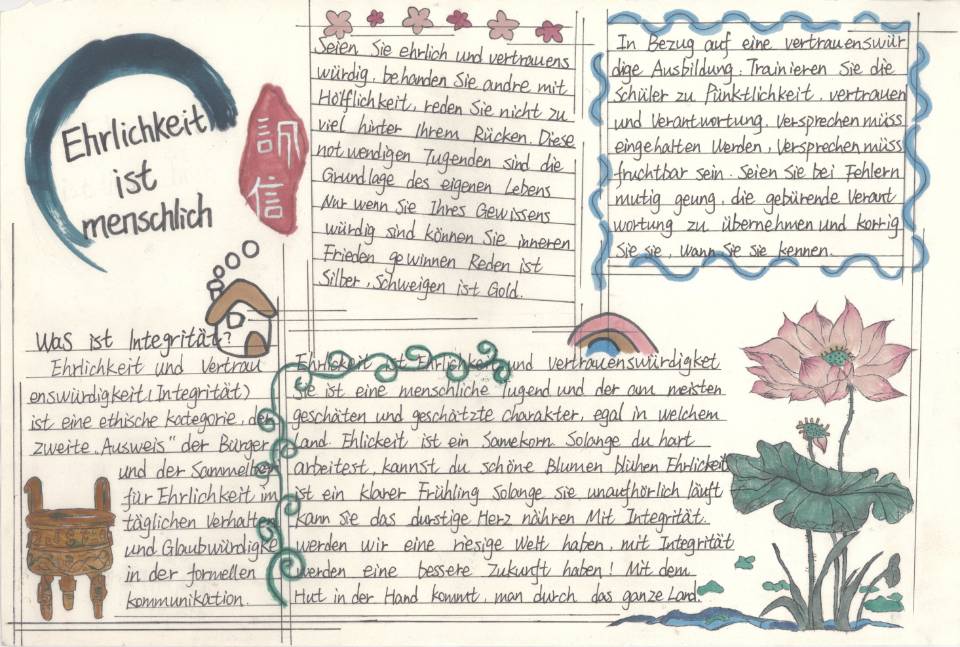 Ehrlichkeit
ist
menschlich
Seien Sie ehrlich und vertrauens
würdig, behanden Sie andre mit
Hölflichkeit, reden Sie nicht zu
viel hinter Ihrem Rücken. Diese
notwendigen Tugenden sind die
Grundlage des eigenen Lebens
Nur wenn Sie Ihres Gewissens
würdig sind können Sie inneren
Frieden gewinnen Reden ist
Silber, Schweigen ist Gold.
In Bezug auf eine vertrauenswür
dige Ausbildung. Trainieren Sie die
schüler zu Pünktlichkeit, vertrauen
und Verantwortung, Versprechen müss
eingehalten Werden, Versprechen müss
fruchtbar sein. Seien Sie bei Fehlern
mutig geung, die gebürende Verant
wortung zu übernehmen und korrig
Sie sie, wann Sie sie kennen.
Was ist Integrität?
Ehrlichkeit und Vertrau
enswürdigkeit (Integrität)
ist eine ethische Kategorie, der
zweite „Ausweis" der Bürger
und der Sammelbe
für Ehrlichkeit im
täglichen Verhalten
und Glaubwürdigke
in der formellen
kommunikation.
Ehrlickeit ist Ehrlichkeit und vertrauenswürdigket
Sie ist eine menschliche Tugend und der am meisten
geschäten und geschätzte charakter, egal in welchem
Land Ehlickeit ist ein Samekorn. Solange du hart
arbeitest, kannst du schöne Blumen blühen Ehrlickeit
ist ein klarer Frühling Solange sie unaufhörlich läuft
kann Sie das durstige Herz nähren Mit Integrität
werden wir eine riesige Welt haben, mit Integrität
werden eine bessere Zukunft haben! Mit dem
Hut in der Hand kommt, man durch das ganze Land.